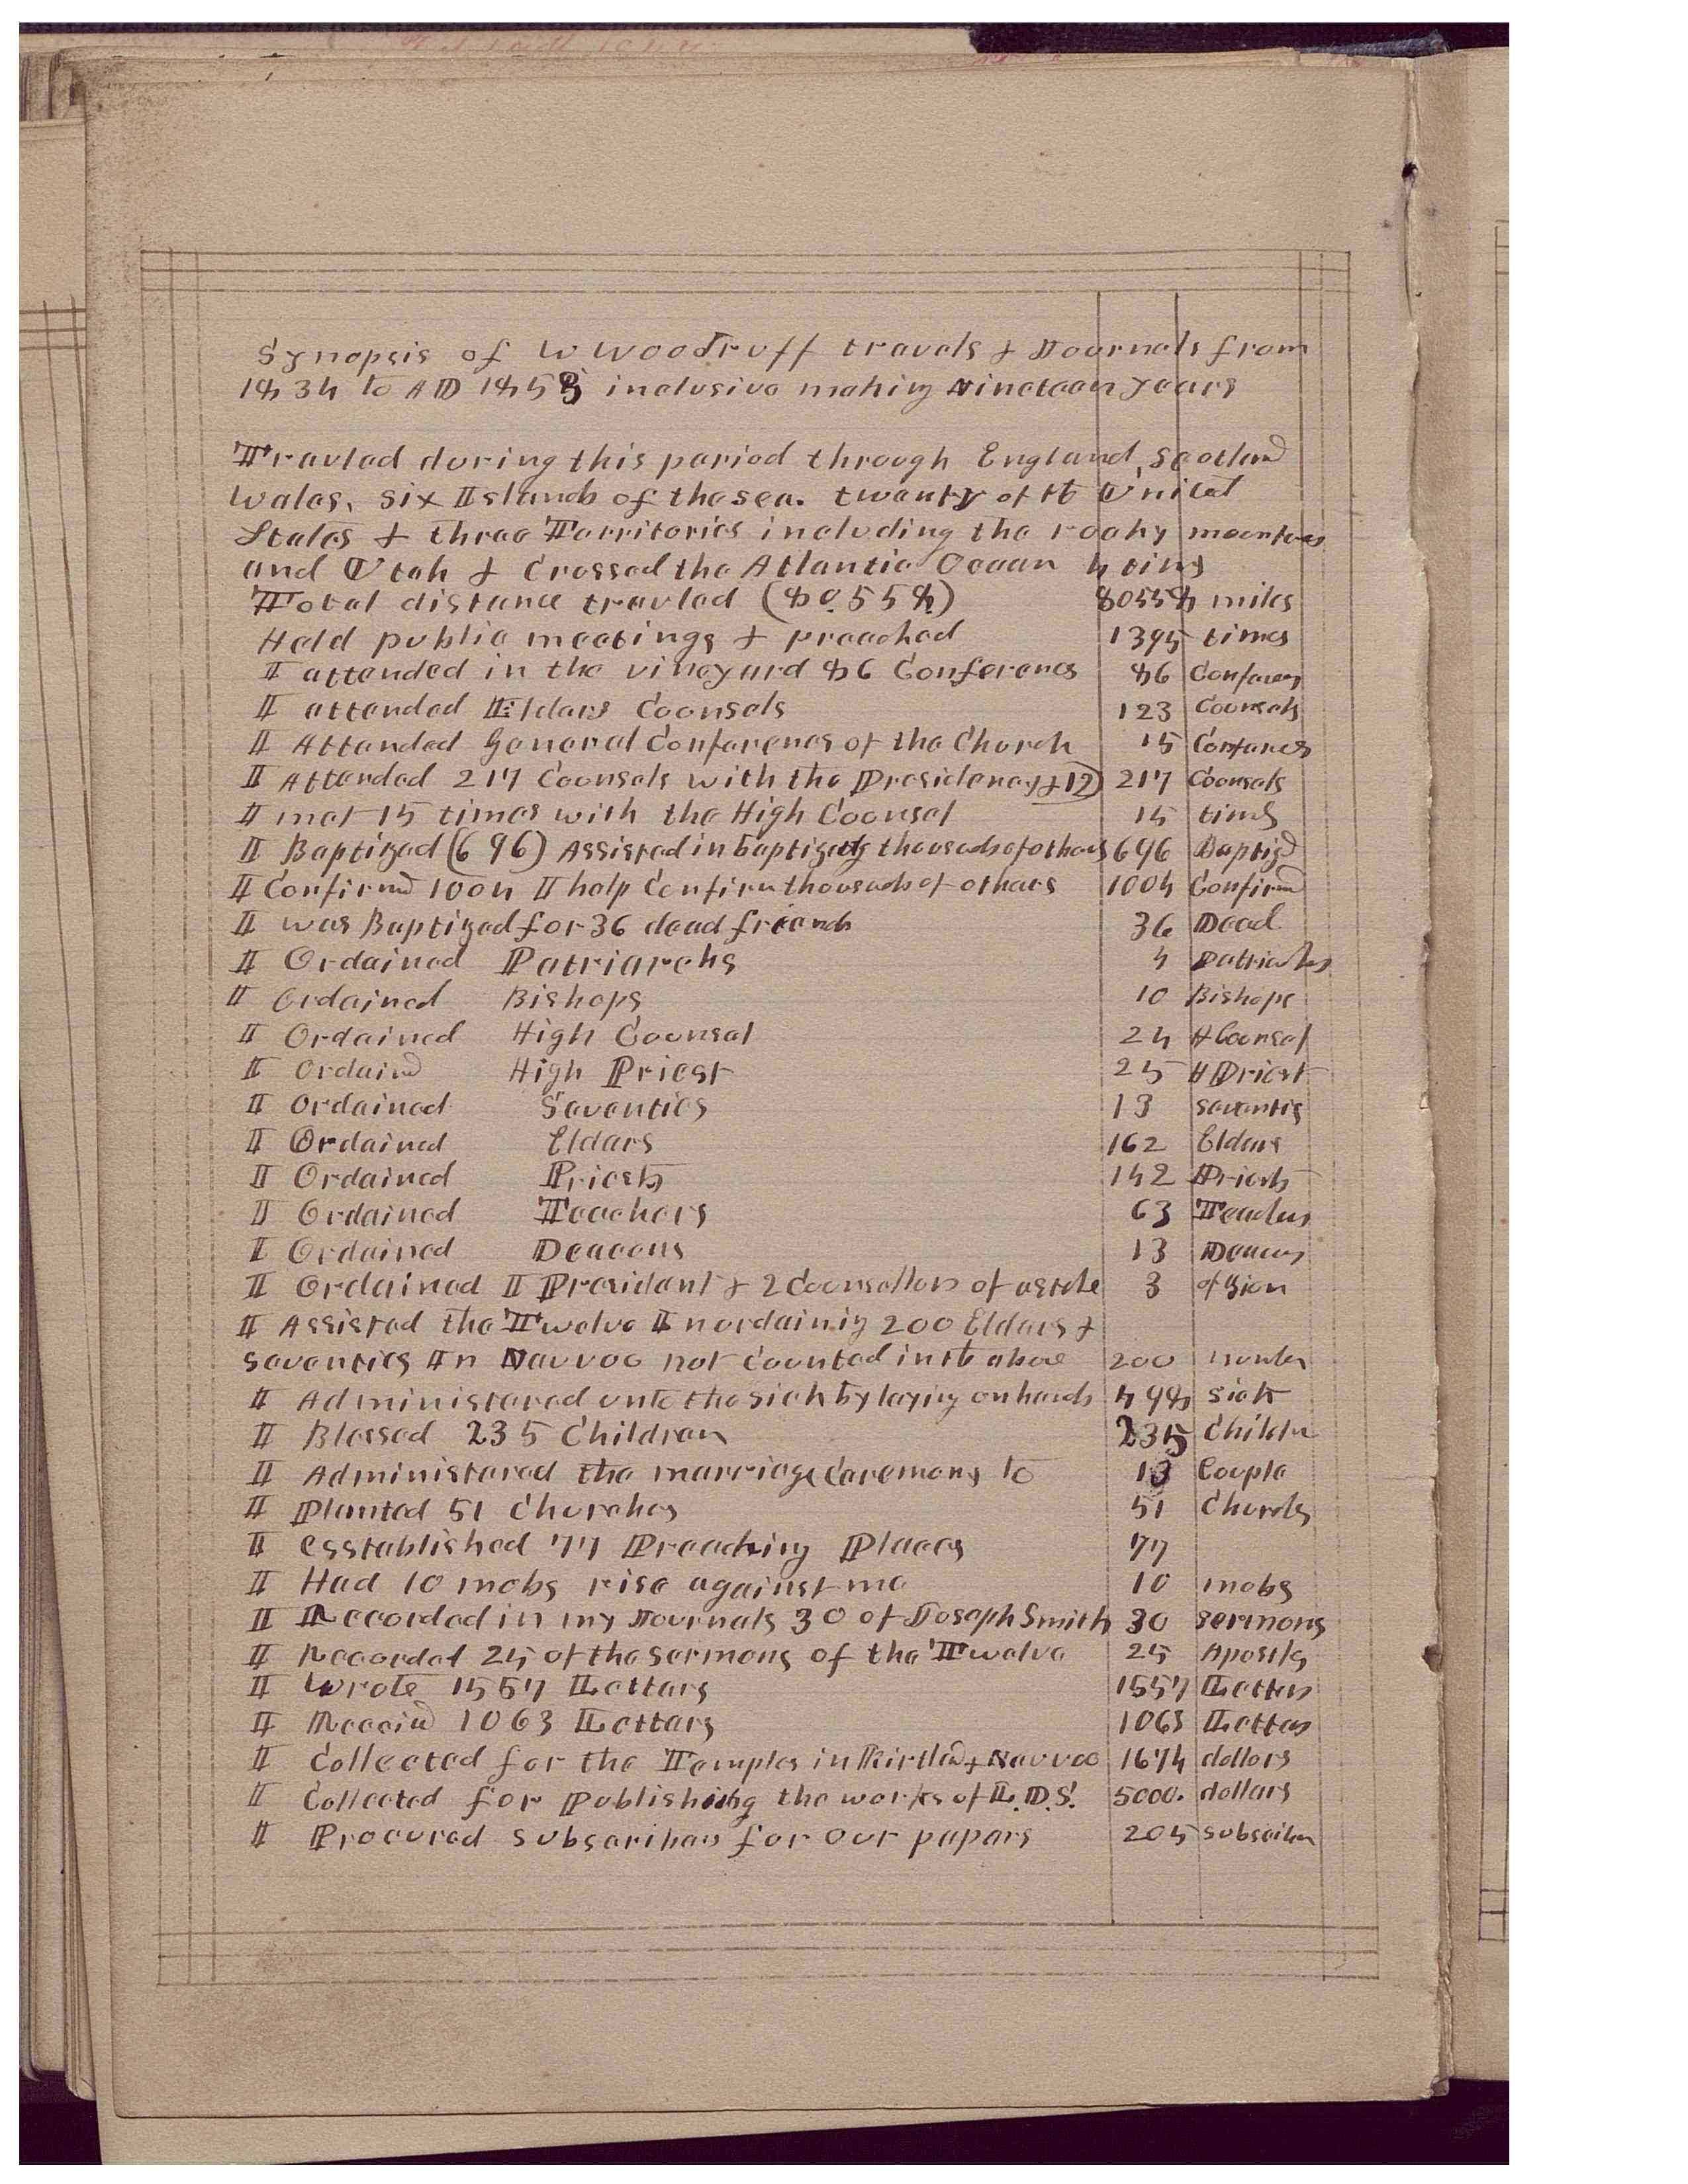 Synopsis of W Woodruff travels & Journals from
1834 to AD 1853 inclusive making Nineteen years
Travled during this period through England, Scotland
Wales, six Islands of the sea. twenty of the United
States & three Territories including the rocky mountains
and Utah & Crossed the Atlantic Ocean 4 times
Total distance travled (80.558) 80558 miles
Held public meetings & preached 1395 times
I attended in the vineyard 86 Conferences 86 Conferences
I attended Elders Counsels 123 Counsels
I Attended General Conferences of the Church 15 Conferences
I Attended 217 Counsels with the Presidency & 12 217 Counsels
I met 15 times with the High Counsel 15 times
I Baptized (696) Assisted in baptizing thousands of others 696 Baptized
I Confirmed 1004 I help Confirm thousands of others 1004 Confirmed
I was Baptized for 36 dead friends 36 Dead
I Ordained Patriarchs 4 Patriarchs
I Ordained Bishops 10 Bishops
I Ordained High Counsel 24 H Counsel
I Ordaind High Priest 25 H Priest
I Ordained Seventies 13 Seventies
I Ordained Elders 162 Elders
I Ordained Priests 142 Priests
I Ordained Teachers 63 Teachers
I Ordained Deacons 13 Deacons
I Ordained I President & 2 Counsellors of a stake 3 of Zion
I Assisted the Twelve In ordaining 200 Elders &
Seventies In Nauvoo not Counted in the above 200 number
I Administered unto the sick by laying on hands 498 Sick
I Blessed 235 Children 235 Children
I Administered the marriage Ceremony to 13 Couple
I Planted 51 Churches 51 Churches
I Esstablished 77 Preaching Places 77
I Had 10 mobs rise against me 10 mobs
I Recorded in my Journals 30 of Joseph Smith 30 Sermons
I Recorded 25 of the Sermons of the Twelve 25 Apostles
I Wrote 1557 Letters 1557 Letters
I Receivd 1063 Letters 1063 Letters
I Collected for the Temples in Kirtland & Nauvoo 1674 dollars
I Collected for Publishing the works of L.D.S. 5000. dollars
I Procured subscribers for our papers 205 subscribers